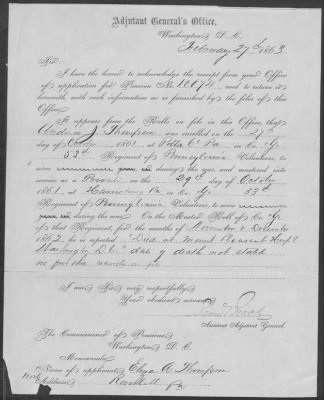 Adjutant General's Office,
Washington, D. C.
February 27th, 1863.
Sir:
I have the honor to acknowledge the receipt from your Office
of application for Pension No. and to return it
herewith, with such information as is furnished by the files of this
Office.
It appears from the Rolls on file in this Office, that
Andrew J. Thompson was enrolled on the
day of 1861, at Pa. in Co. "G"
53d Regiment of Pennsylvania Volunteers, to
serve during the war, and mustered
into service as a Private on the 29th day of October
1861, at Pa, in Co. "G" 53d
Regiment of Pennsylvania Volunteers, to serve
during the war. On the Muster Roll of Co. "G"
of that Regiment, for the months of November & December
1862, he is reported "Died at Mount Pleasant Hospl
Washington D.C." day of death not stated.
I am, Sir, very respectfully,
Your obedient servant,
Assistant Adjutant General.
The Commissioner of Pensions,
Washington, D. C.
Memoranda:
Name of applicant, Eliza A. Thompson
Address, Pa